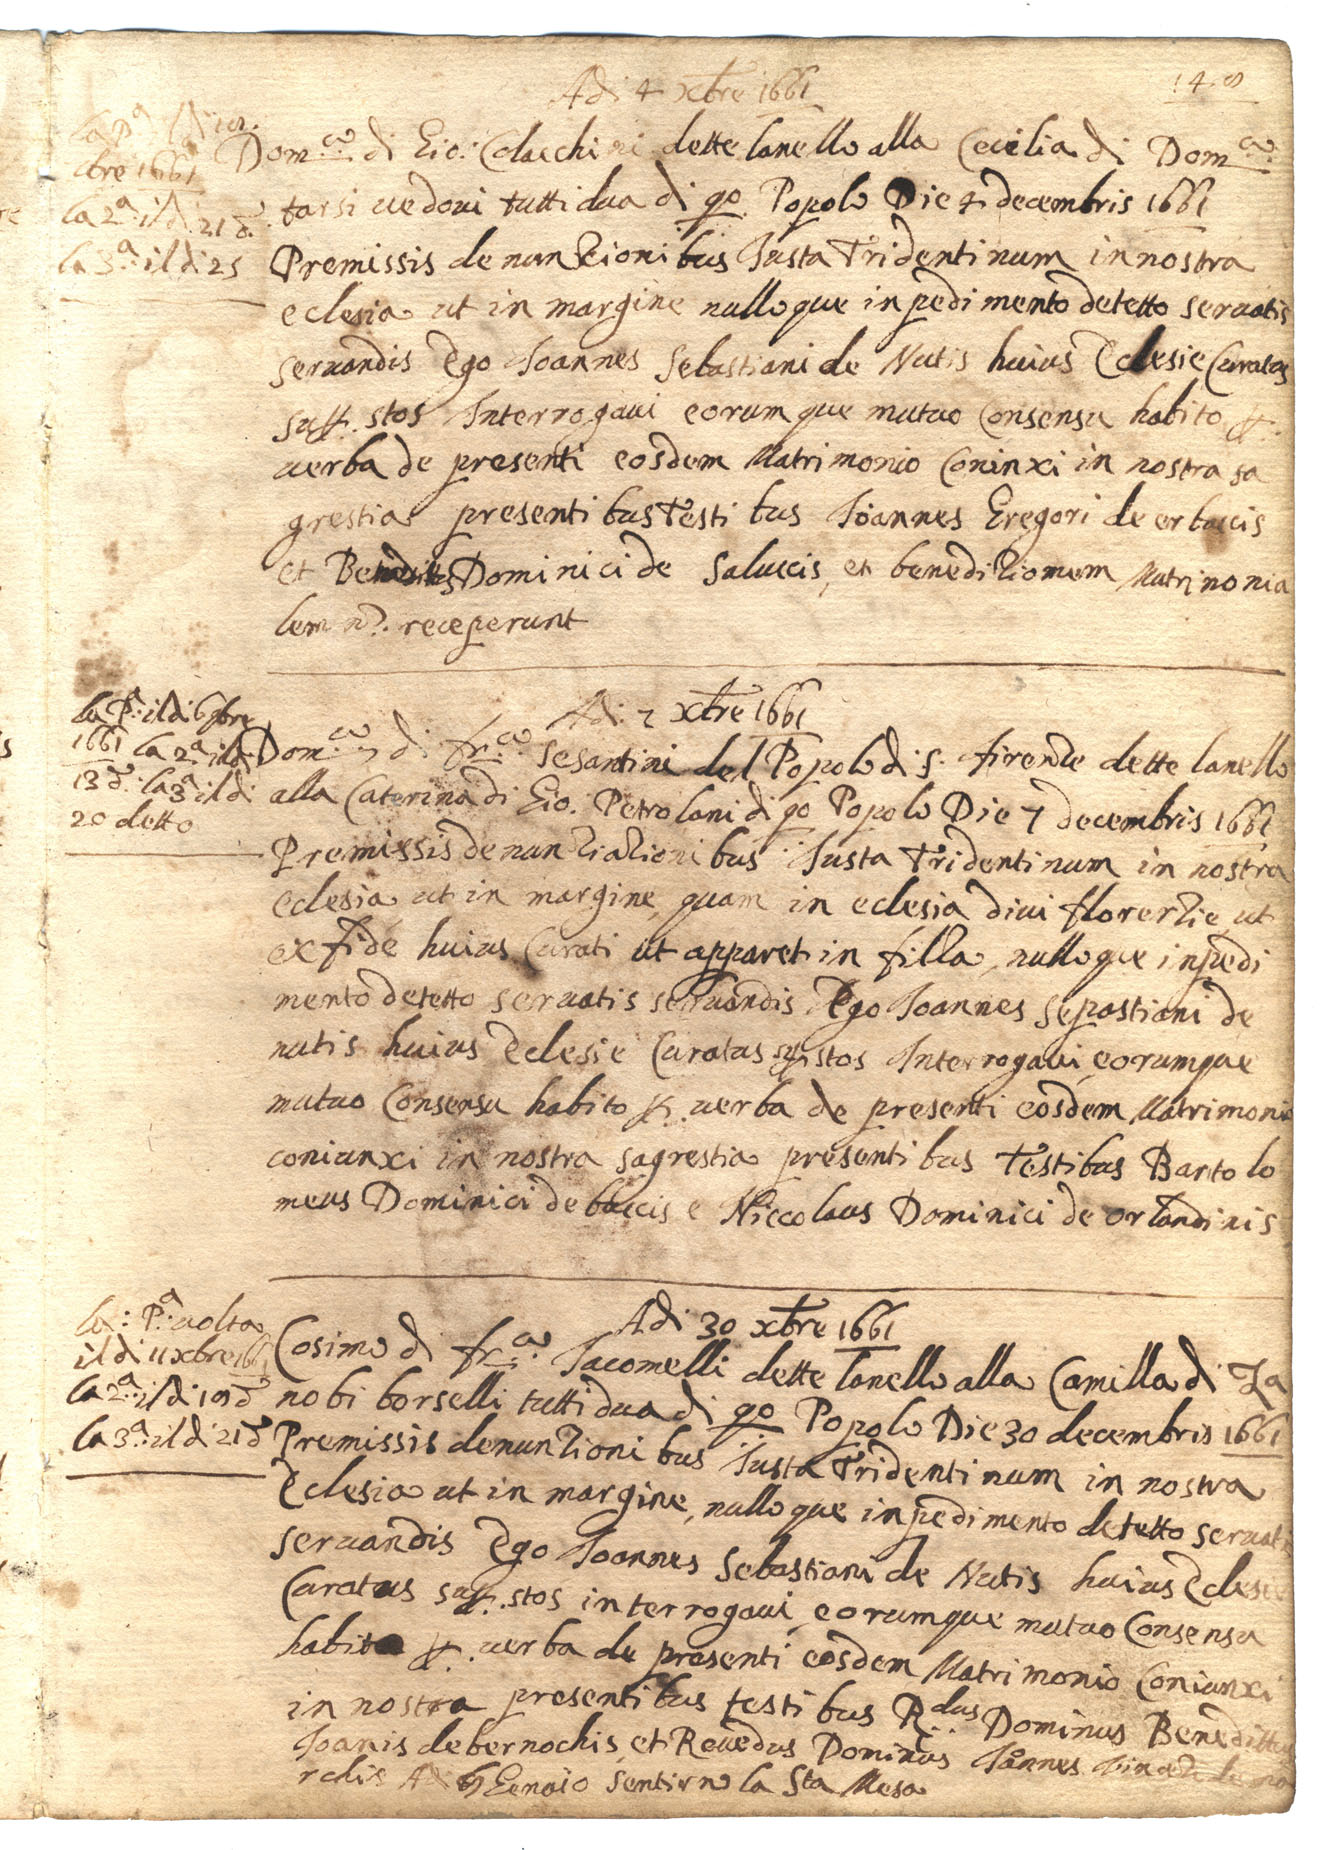 148
Adi 4 xbre 1661
la Pa
bre 1661
la 2a. il di 21 d.
la 3a. il di 25
Dom.co di Gio: Colacchini dette lanello alla Cecilia di Dom.co
tarsi vedovi tutti dua di qo Popolo Die 4 decembris 1661
Premissis denuntionibus Iusta Tridentinum in nostra
eclesia ut in margine nulloque inpedimento detetto servatis
servandis Ego Ioannes Sebastiani de Nutis huius Eclesie Curatus
sup.stos Interrogavi eorumque mutuo Consensu habito p.
verba de presenti eosdem Matrimonio Coninxi in nostra sa
grestia presentibus Testibus Ioannes Gregori de erbaccis
et Beneditus Dominici de Saluccis, et beneditiomem Matrinonia
lem n. receperunt
Adi 7 xbre 1661
la Pa. il di 6 9bre
1661 la 2a. il di
13 d. la 3a il di
20 detto
Dom.co di fr.co Sesantini del Popolo di S. firenze dette lanello
alla Caterina di Gio. Petrolani di qo Popolo Die 7 decembris 1661
Premissis denuntiationibus Iusta Tridentinum in nostra
eclesia ut in margine, quam in eclesia divi florentie, ut
ex fide huius Curati ut apparet in filla, nulloque inpedi
mento detetto servatis servandis Ego Ioannes Sepastiani de
nutis huius Eclesie Curatus supstos Interrogavi, eorumque
mutuo Consensu habito p. verba de presenti eosdem Matrimonio
coniunxi in nostra sagrestia presentibus Testibus Bartolo
meus Dominici de baccis e Niccolaus Dominici de orlandinis
Adi 30 xbre 1661
la: Pa. volta
il di 11 xbre 1661
la 2a. il di 19 d
la 3a. il di 21 d
Cosimo di fr.co Iacomelli dette lanello alla Camilla di Za
nobi borselli tutti dua di qo Popolo Die 30 decembris 1661
Premissis denuntionibus Iusta Tridentinum in nostra
Eclesia ut in margine, nulloque inpedimento detetto servatis
servandis Ego Ioannes Sebastiani de Nutis huius Eclesie
Curatus sup.stos interrogavi, eorumque mutuo Consensu
habito p. verba de presenti eosdem Matrimonio Coniunxi
in nostra presentibus testibus R.dus Dominus Beneditus
Ioanis de bernochis, et Revedus Dominus Ioannes
rchis Adi Genaio sentirno la Sta Mesa